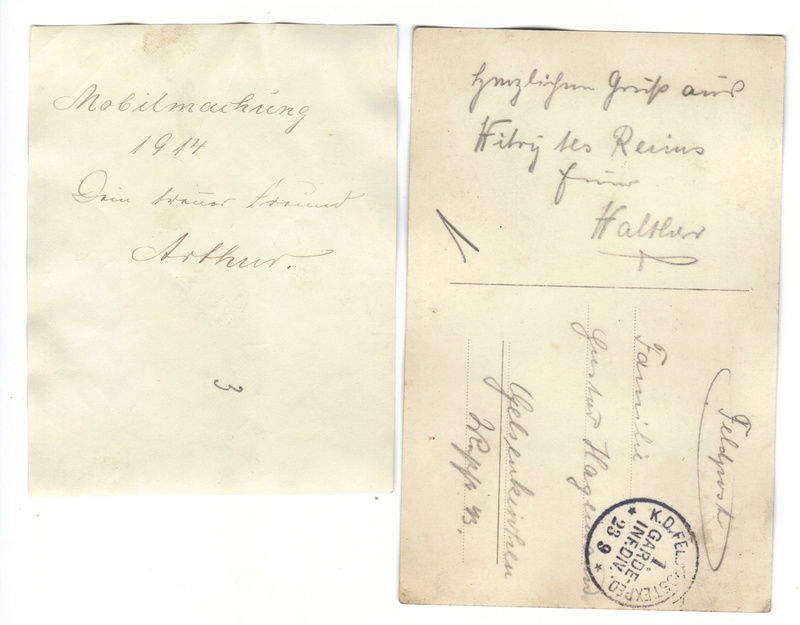 Mobilmachung
1914
Dein treuer Freund
Arthur.
3
Herzlichen Gruß aus
Vitry les Reims
Euer
Walther
Feldpost
Familie
Gustav Hagemann
Gelsenkirchen
K.D. FELDPOSTEXPED.
1
GARDE-
INF.DIV.
23 9